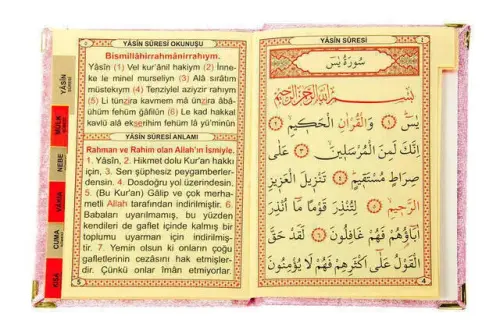 YÂSİN SÛRESİ OKUNUŞU
Bismillâhirrahmânirrahıym.
Yâsîn (1) Vel kur'ânil hakiym (2) İnne-
ke le minel murseliyn (3) Alâ sırâtım
müstekıym (4) Tenziylel aziyzir rahıym
(5) Li tünzira kavmem mâ ünzira âbâ-
ühüm fehüm ğâfilûn (6) Le kad hakkal
kavlü alâ ekserihim fehüm lâ yü'minûn
YÂSİN SÛRESİ ANLAMI
Rahman ve Rahim olan Allah'ın İsmiyle.
1. Yâsîn, 2. Hikmet dolu Kur'an hakkı
için, 3. Sen şüphesiz peygamberler-
densin. 4. Dosdoğru yol üzerindesin.
5. (Bu Kur'an) Gâlip ve çok merha-
metli Allah tarafından indirilmiştir. 6.
Babaları uyarılmamış, bu yüzden
kendileri de gaflet içinde kalmış bir
toplumu uyarman için indirilmiş-
tir. 7. Yemin olsun ki onların çoğu
gafletlerinin cezasını hak etmişler-
dir. Çünkü onlar îman etmiyorlar.
5
YÂSİN
MÜLK
NEBE
VÂKIA
CUMA
KISA
YÂSİN SÛRESİ
سُورَةُ يٰسٓ
بِسْمِ اللّٰهِ الرَّحْمٰنِ الرَّحِيمِ
يٰسٓ ﴿١﴾ وَالْقُرْاٰنِ الْحَكِيمِ ﴿٢﴾
اِنَّكَ لَمِنَ الْمُرْسَلِينَ ﴿٣﴾ عَلٰى
صِرَاطٍ مُسْتَقِيمٍ ﴿٤﴾ تَنْزِيلَ الْعَزِيزِ
الرَّحِيمِ ﴿٥﴾ لِتُنْذِرَ قَوْمًا مَٓا اُنْذِرَ
اٰبَٓاؤُهُمْ فَهُمْ غَافِلُونَ ﴿٦﴾ لَقَدْ حَقَّ
الْقَوْلُ عَلٰٓى اَكْثَرِهِمْ فَهُمْ لَا يُؤْمِنُونَ
4